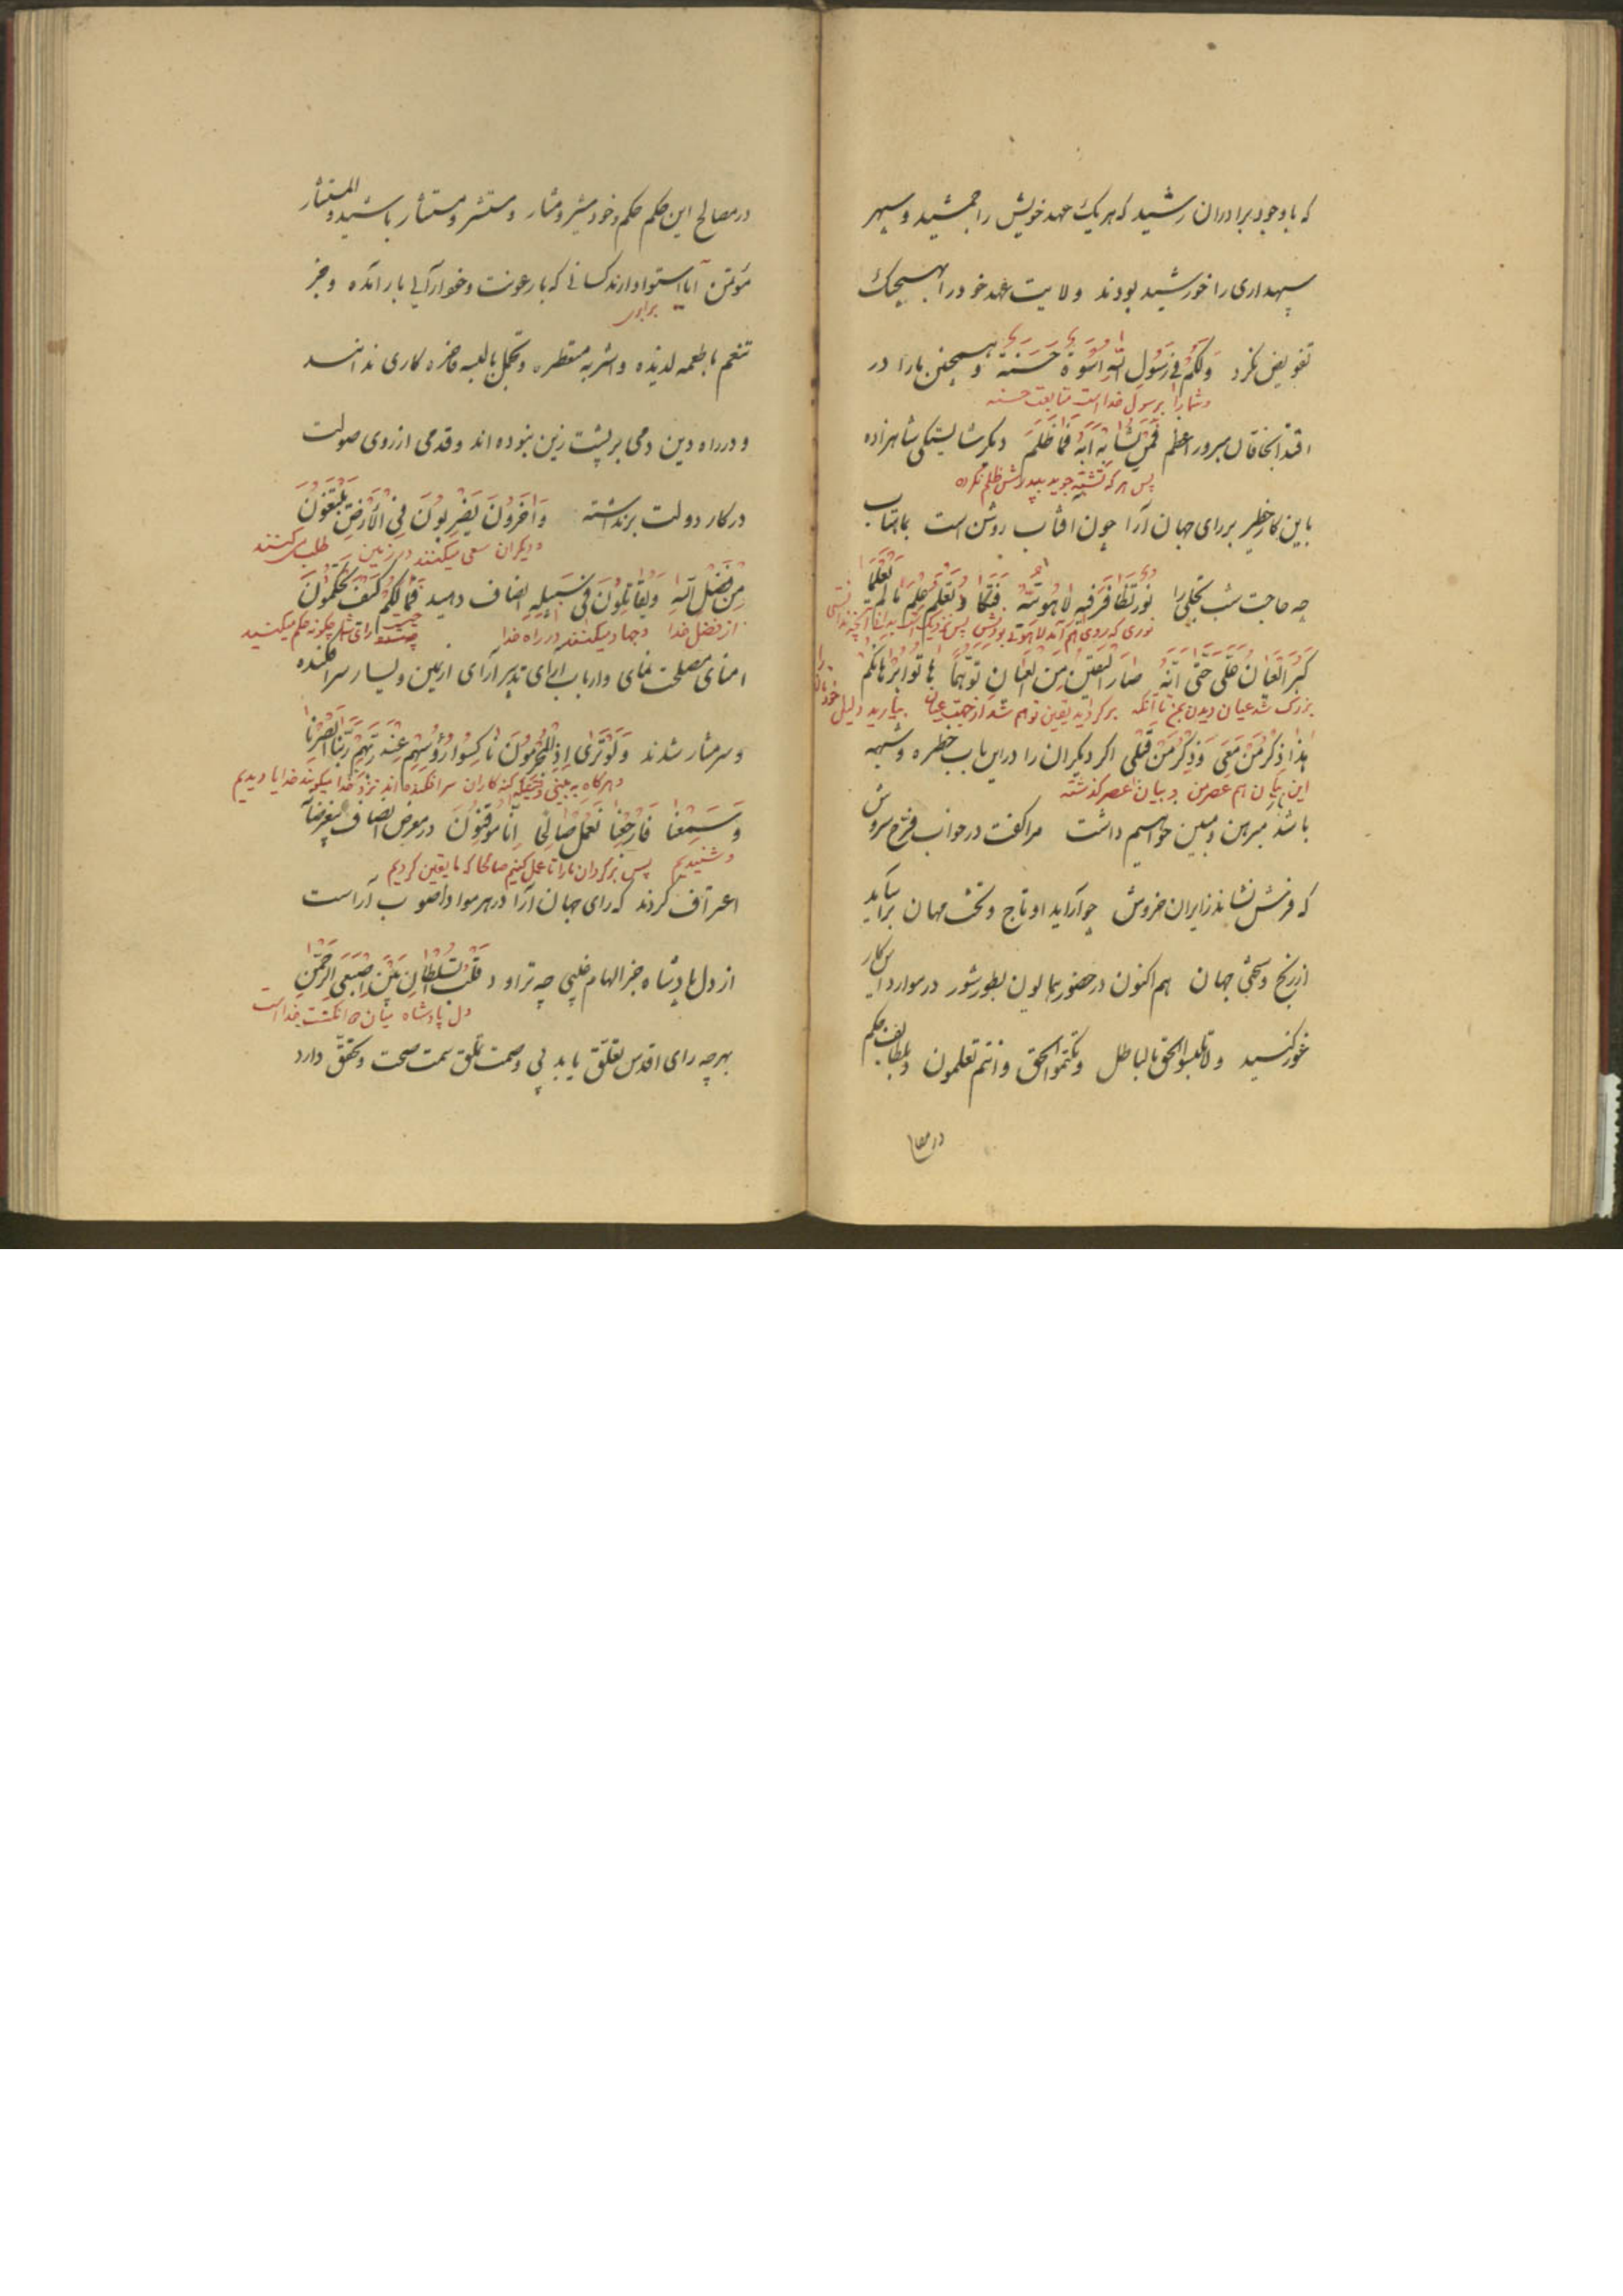 که باوجود برادران رشید که هریک عهد خویش را جمشید و سپهر
سپهداری را خورشید بودند ولایت عهد خود را بهیچیک
تفویض نکرد وَلَکُم فی رَسُولِ اللهِ اُسْوَةٌ حَسَنَة و همچنین ما را در
و شما را برسول خدا است متابعت حسنه
اقتدا بخاقان مبرور اعظم فَمَنْ یُشابِه اَبَهُ فَما ظَلَمَ دیگر شایستگی شاهزاده
پس هرکه تشبّه جوید بپدرش ظلم نکرده
باین کار خطیر بر رای جهان آرا چون افتاب روشن است بماهتاب
چه حاجت شب تجلی را نُور تَظافَرَ فیهِ لاهُوتیُّهُ فَتَکادُ تَعْلَمُ عِلْمَ ما لَمْ تَعْلَما
کَبُرَ العَیانُ عَلَیَّ حَتّی اَنَّهُ صارَ الیَقینُ مِنَ العَیانِ تَوَهُّماً هاتُوا بُرهانَکُم
بزرک شد عیان دیدن بمن تا آنکه برکردید یقین توهم شد از جهت عیان بیارید دلیل خودتان را
هذا ذِکْرُ مَنْ مَعِیَ وَ ذِکْرُ مَنْ قَبْلی اکر دیکران را دراین باب خطره و شبهه
این بیان هم عصرمن و بیان عصر کذشته
باشد مبرهن و مبین خواهیم داشت مرا کفت درخواب فرّخ سروش
که فرش نشاند ز ایران خروش چو آراید او تاج و تخت مهان براساید
از رنج و سختی جهان هم اکنون در حضور همایون بطور شور در موارد این کار
غور کنید ولا تلبسوا الحق بالباطل وتکتموا الحق وانتم تعلمون و بلطایف حکم
در مصالح
در مصالح این حکم حکم و خود مشیر و مشار و مستشیر و مستشار باشید و المستشار
مؤتمن آیا استوا دارند کسانی که با رعونت و خودآرائی بار آمده و جز
برابری
تنعم باطعمه لذیذه و اشربه مقطره و تجمل بالبسه فاخره کاری ندانند
و درراه دین دمی بر پشت زین نبوده اند و قدمی ازروی صولت
درکار دولت برنداشته وَ اخَرُونَ یَضْرِبُونَ فِی الْاَرْضِ یَبْتَغُونَ
و دیکران سعی میکنند در زمین طلب میکنند
مِنْ فَضْلِ اللهِ وَ یُقاتِلُونَ فی سَبیلِهِ انصاف دهید فَمالَکُم کَیْفَ تَحْکُمُونَ
از فضل خدا و جهاد میکنند در راه خدا چیست رای شما چکونه حکم میکنید
امنای مصلحت نمای و ارباب آرای تدبیر آرای از یمین و یسار سرافکنده
و سرشار شدند وَ لَوْ تَری اِذِ الْمُجْرِمُونَ ناکِسُوا رُؤُسِهِم عِنْدَ رَبِّهِم رَبَّنا اَبْصَرْنا
و هرکاه به بینی وقتیکه کنه کاران سرافکنده اند نزد خدا میکویند خدایا دیدیم
وَ سَمِعْنا فَارْجِعْنا نَعْمَلْ صالِحاً اِنّا مُوقِنُونَ در معرض انصاف بیغرضانه
و شنیدیم پس برکردان ما را تا عمل کنیم صالحا که ما یقین کردیم
اعتراف کردند که رای جهان آرا در هر مواد اصوب آراست
از دل پادشاه جز الهام غیبی چه تراود قَلْبُ السُّلْطانِ بَیْنَ اِصْبَعَیِ الرَّحْمنِ
دل پادشاه میان دو انکشت خدا است
بهرچه رای اقدس تعلّق یابد بی وصمت تملق سمت صحت و تحقّق دارد